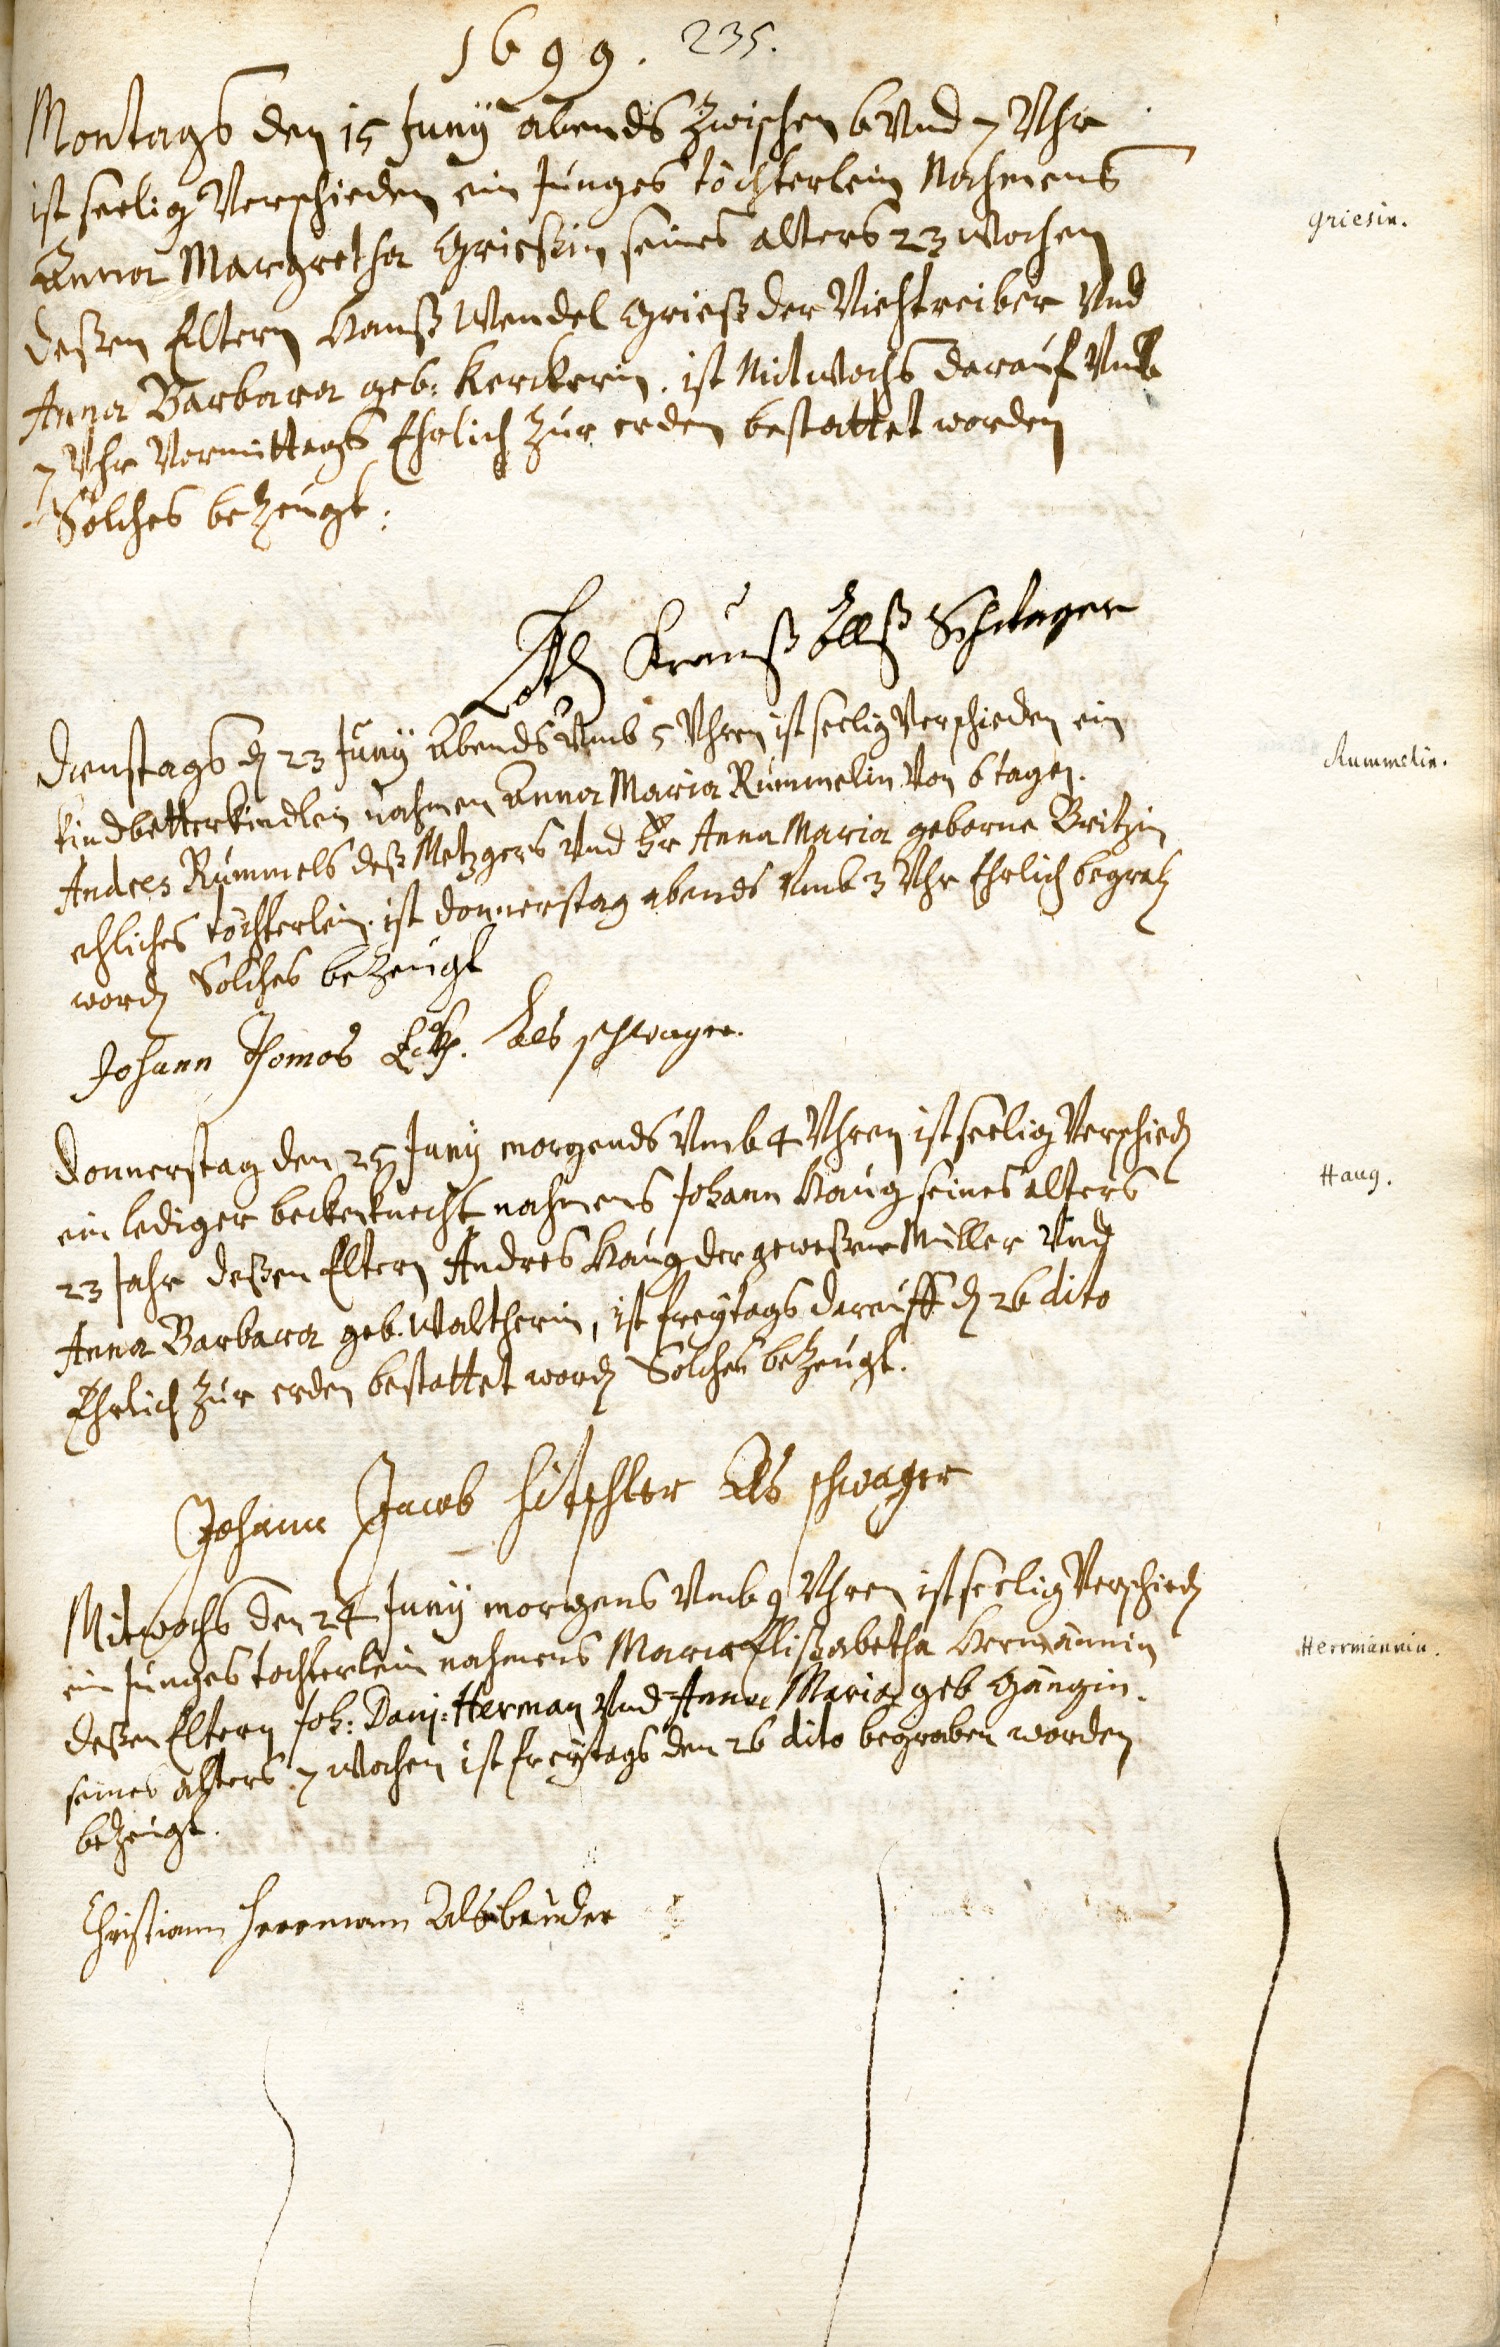 1699. 235.
Montags den 15 Juny abends zwischen 6 Vnd 7 Vhr
ist seelig Verschieden ein Junges töchterlein Nahmens
Anna Margretha Grießin seines alters 23 wochen
deßen Eltern Hanß Wendel Grieß der Viehtreiber Vnd
Anna Barbara geb: Kerckerin. ist Mitwochs darauf Vmb
7 Vhr Vormittags Ehrlich zur erden bestattet worden
Solches bezeugt:
Krauß Allß Schwager
Griesin.
Dienstags d 23 Juny Abends Vmb 5 Vhren ist seelig Verschieden ein
Kindbetterkindlein nahmen Anna Maria Rummelin Von 6 tagen.
Andres Rummels deß Metzgers Vnd Anna Maria geborne Britzin
ehliches töchterlein. ist donnerstag abends Vmb 3 Vhr Ehrlich begrab
word Solches bezeugt
Johann Thomas als schwager.
Rummelin.
Donnerstag den 25 Juny morgends Vmb 4 Vhren ist seelig Verschied
ein lediger beckenknecht nahmens Johann Haug seines alters
23 Jahr deßen Eltern Andres Haug der geweßene Müller Vnd
Anna Barbara geb. Waltherin, ist freytags darauff d 26 dito
Ehrlich zur erden bestattet word Solches bezeugt.
Johann Jacob Hitschler Als schwager
Haug.
Mitwochs den 24 Juny morgens Vmb 9 Vhren ist seelig Verschied
ein Junges tochterlein nahmens Maria Elisabetha Hermännin
deßen Eltern Joh: Danj: Herman Vnd Anna Maria geb Gängin.
seines alters 7 wochen ist freytags den 26 dito begraben worden
bezeugt.
Christiann Herrmann Als bruder
Herrmännin.